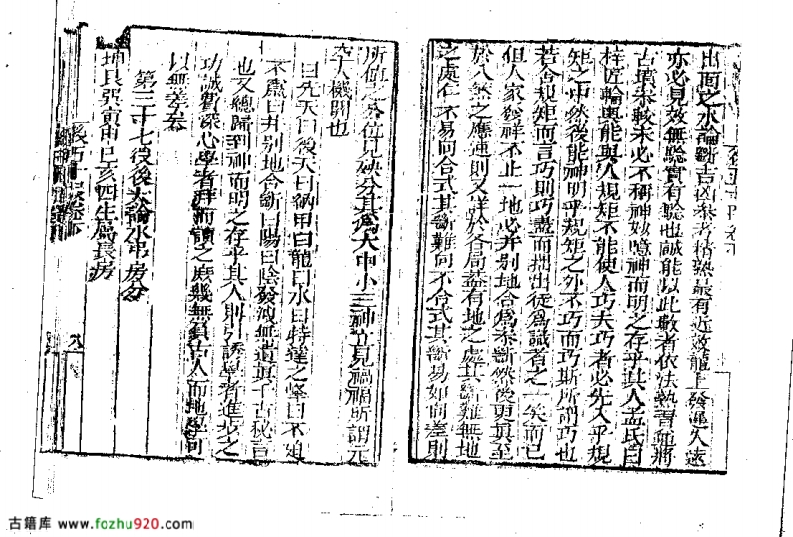 出面之水論斷吉凶參考精熟最有近效龍上發運久遠
亦必見效無驗實有驗也誠能以此敬者依法熟習
古墳參較未必不稱神妙神而明之存乎其人孟氏曰
梓匠輪輿能與人規矩不能使人巧夫巧者必先入乎規
矩之中然後能神明乎規矩之外不巧而巧斯所謂巧也
若舍規矩而言巧則巧盡而拙出徒為識者之一笑而已
但人家發祥不止一地必并別地合為參斷然後更真至
於八煞之應運則又詳於各局蓋有地之處其斷難無地
之處在不易向合式其斷難向不合式其斷易如向差則
所值之宮位見殃分其為大中小三神立見禍福所謂元
空大機關也
曰先天曰後天曰納甲曰龍曰水曰特達之峰曰不
不為曰井別地合斷曰陽曰陰發洩無遺真千古秘旨
也又總歸到神而明之存乎其人則引誘學者進步之
功誠實深心學者詳而讀之庶幾無負古人而地學可
以無差忒
第三十七後後天論水弔房分
坤艮巽寅申巳亥四生屬長房
古籍库 www.fozhu920.com